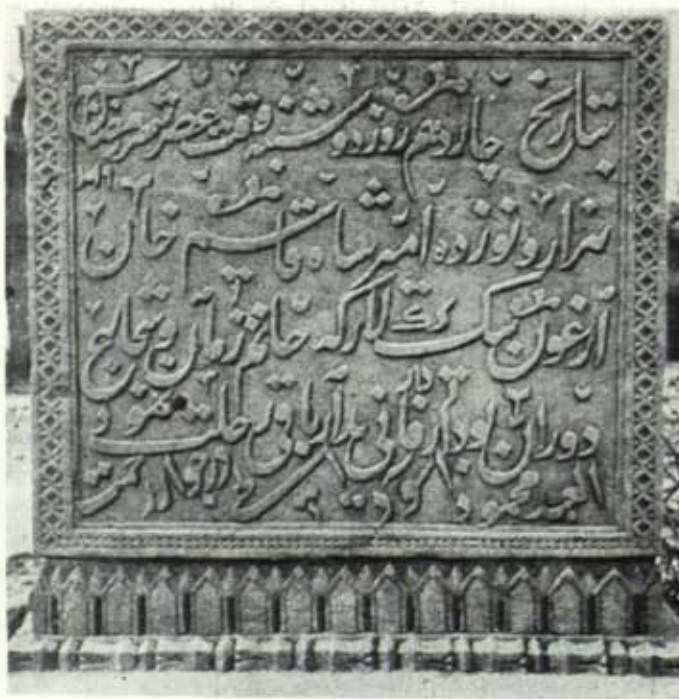 بتاریخ چاردهم روز دوشنبه وقت عصر شهر رمضان سنه
هزار و نوزده امیر شاه قاسم خان
ارغون بیک لار که حاتم زمان و شجاع
دوران بود از دار فانی بدار باقی رحلت نمود
العبد محمود